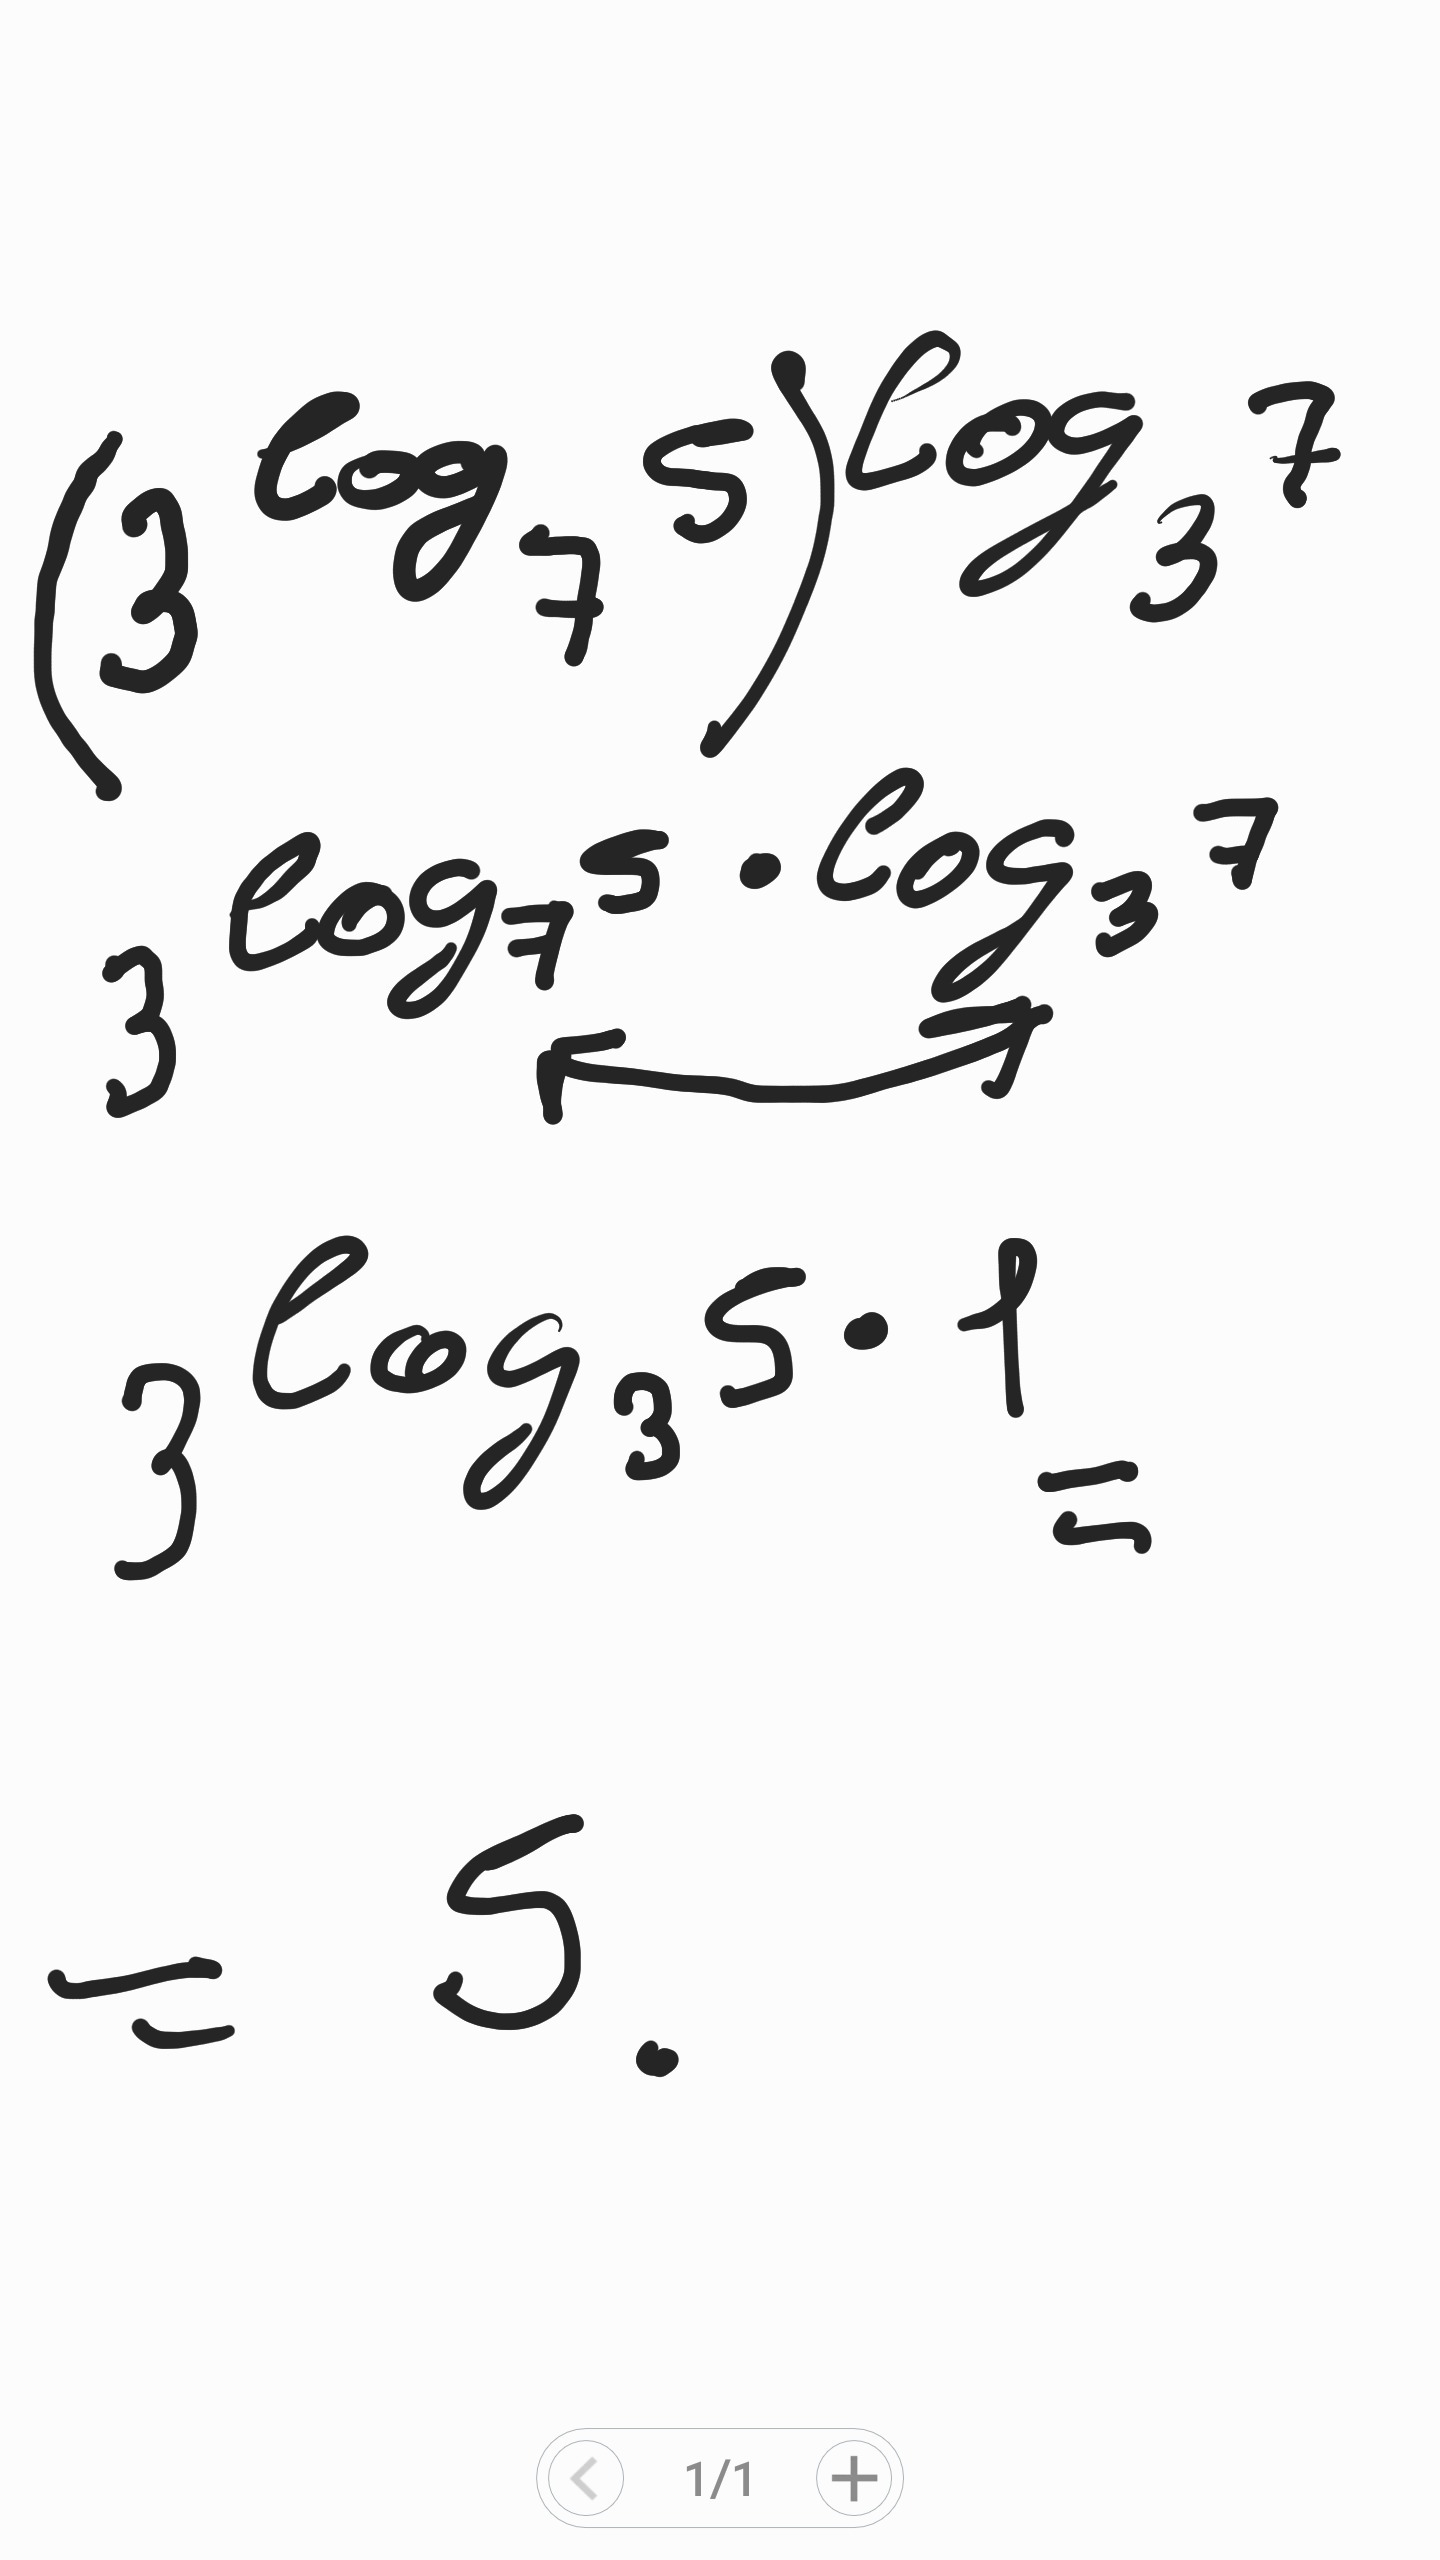 (3^{log_7 5})^{log_3 7}
3^{log_7 5 · log_3 7}
3^{log_3 5 · 1} =
= 5.
1/1